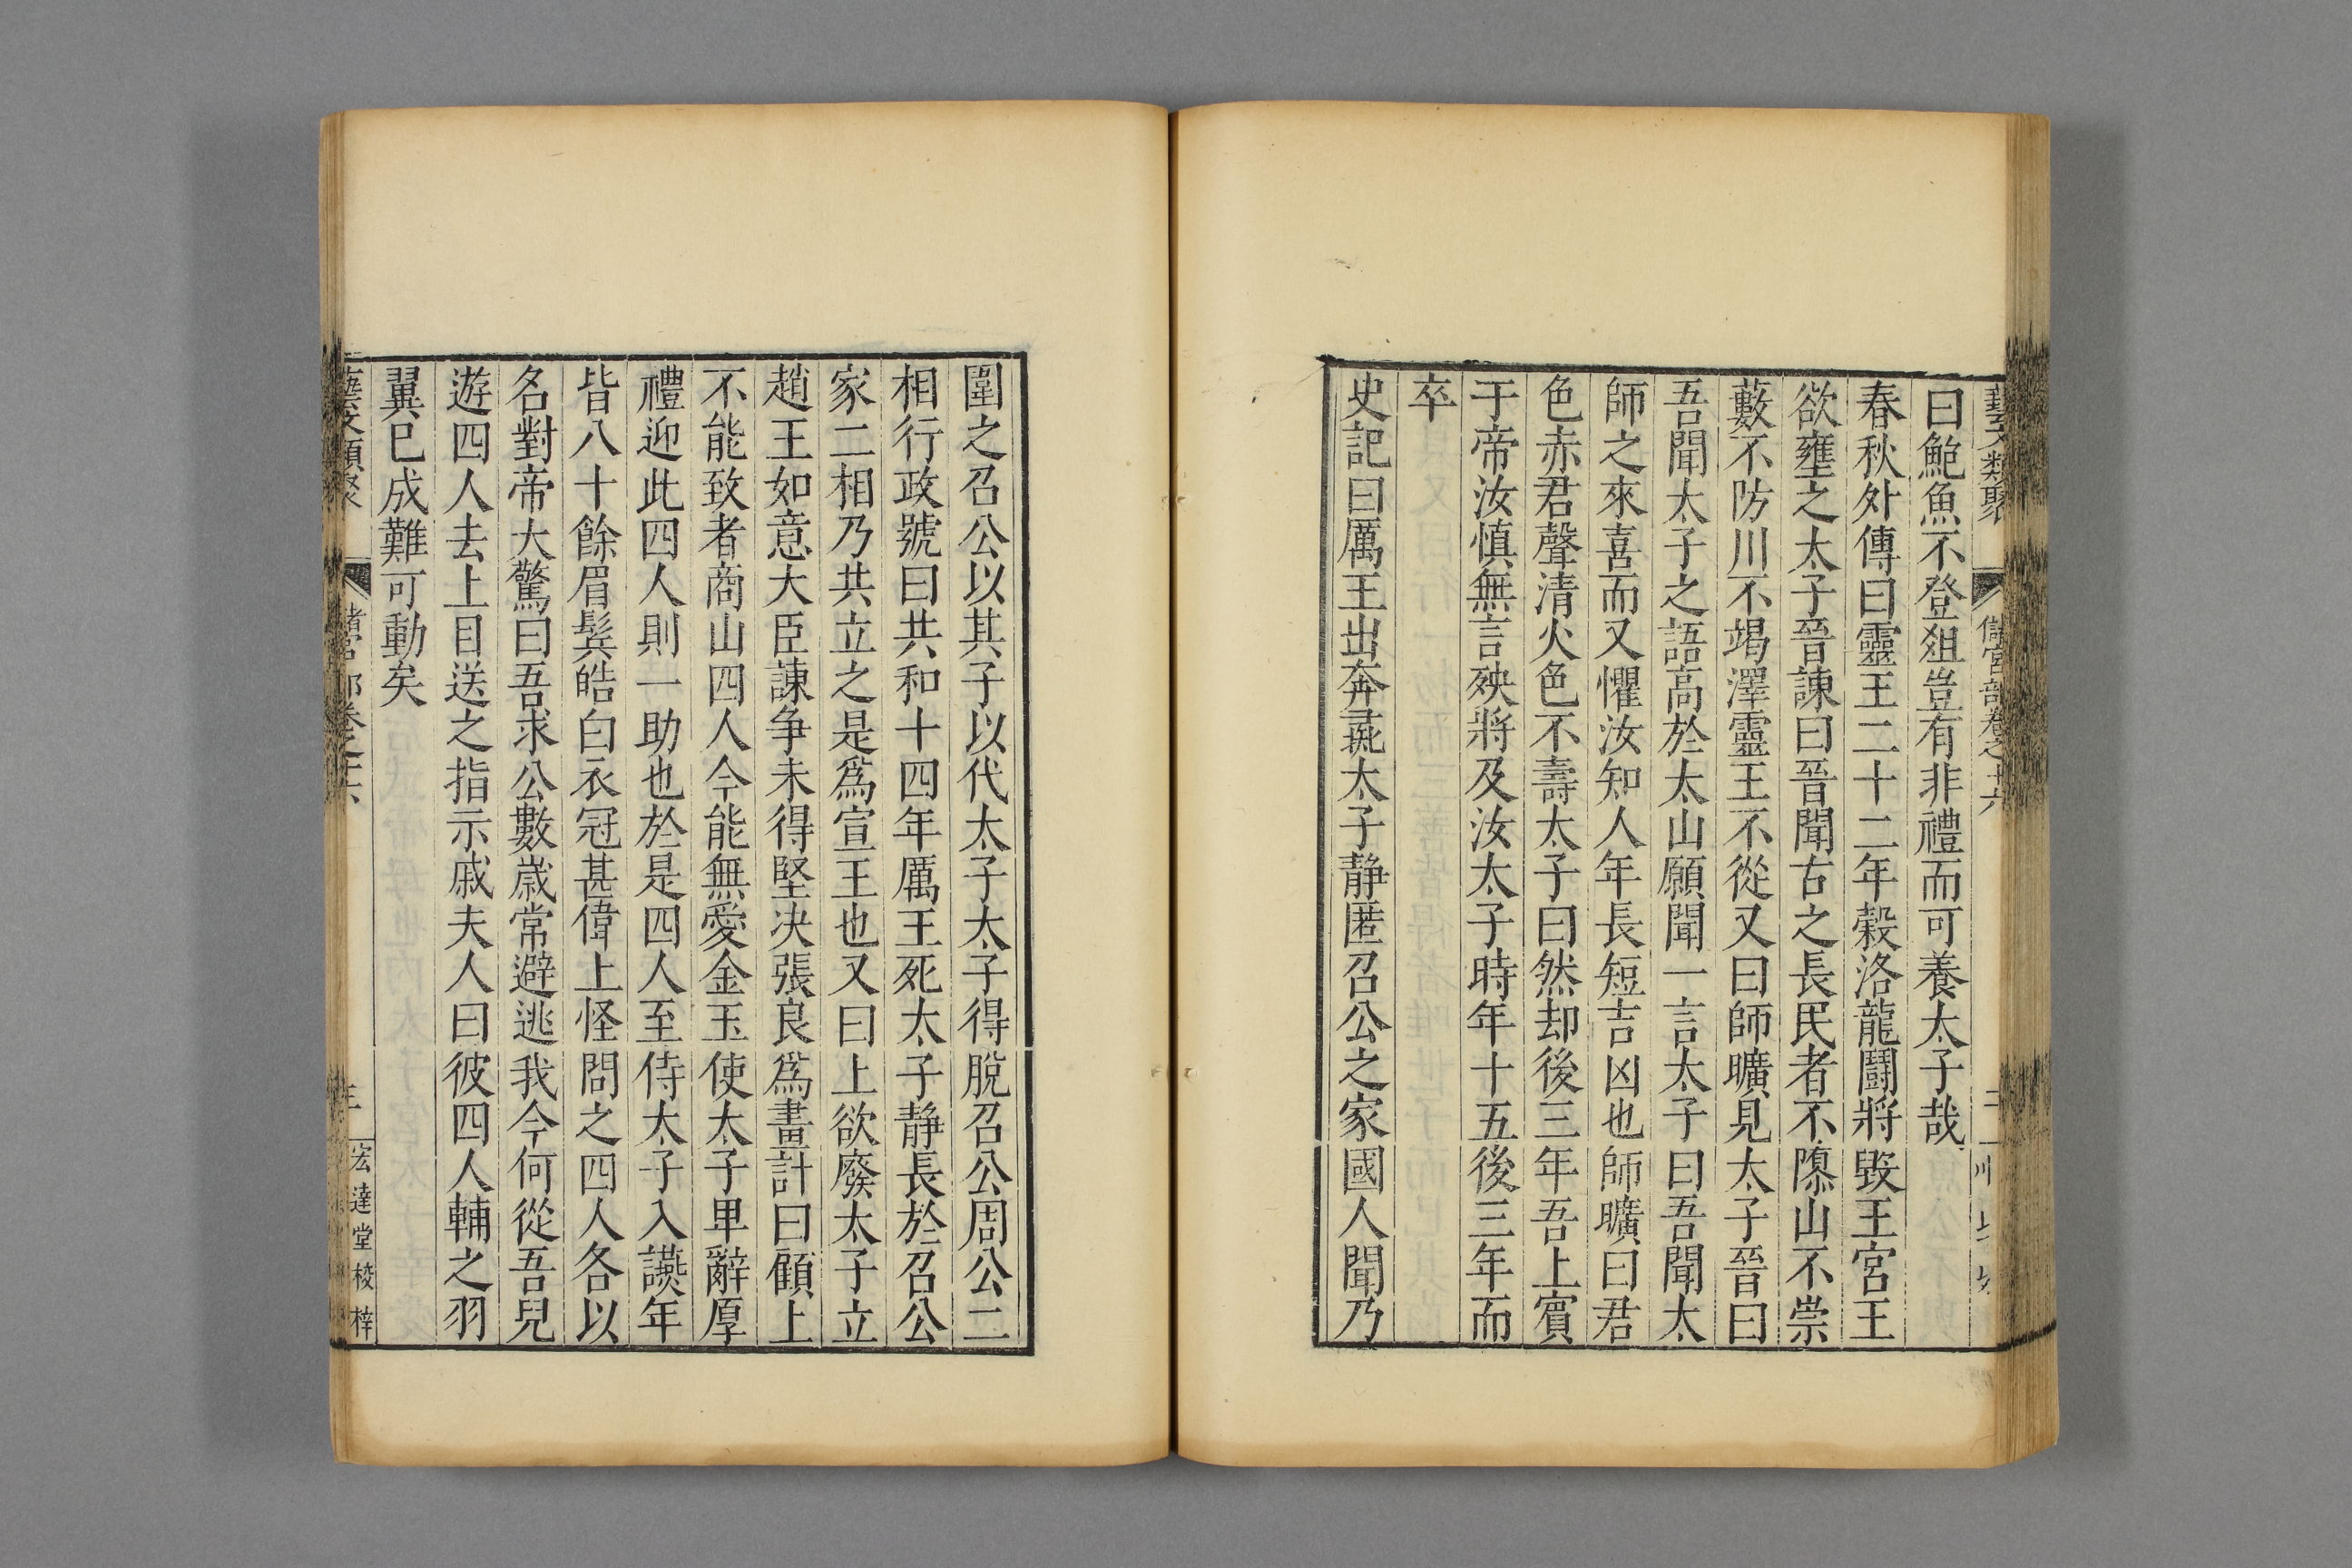 藝文類聚 儲宮部卷之十六
曰鮑魚不登俎豈有非禮而可養太子哉
春秋外傳曰靈王二十二年穀洛龍鬪將毀王宮王
欲壅之太子晉諫曰晉聞古之長民者不隳山不崇
藪不防川不竭澤靈王不從又曰師曠見太子晉曰
吾聞太子之語高於太山願聞一言太子曰吾聞太
師之來喜而又懼汝知人年長短吉凶也師曠曰君
色赤君聲清火色不壽太子曰然却後三年吾上賓
于帝汝慎無言殃將及汝太子時年十五後三年而
卒
史記曰厲王出奔彘太子靜匿召公之家國人聞乃
圍之召公以其子以代太子太子得脫召公周公二
相行政號曰共和十四年厲王死太子靜長於召公
家二相乃共立之是爲宣王也又曰上欲廢太子立
趙王如意大臣諫争未得堅决張良爲畫計曰顧上
不能致者商山四人今能無愛金玉使太子卑辭厚
禮迎此四人則一助也於是四人至侍太子入讌年
皆八十餘眉鬂皓白衣冠甚偉上怪問之四人各以
名對帝大驚曰吾求公數歲常避逃我今何從吾兒
遊四人去上目送之指示戚夫人曰彼四人輔之羽
翼已成難可動矣
藝文類聚 儲宮部卷之十六 三 宏達堂校梓